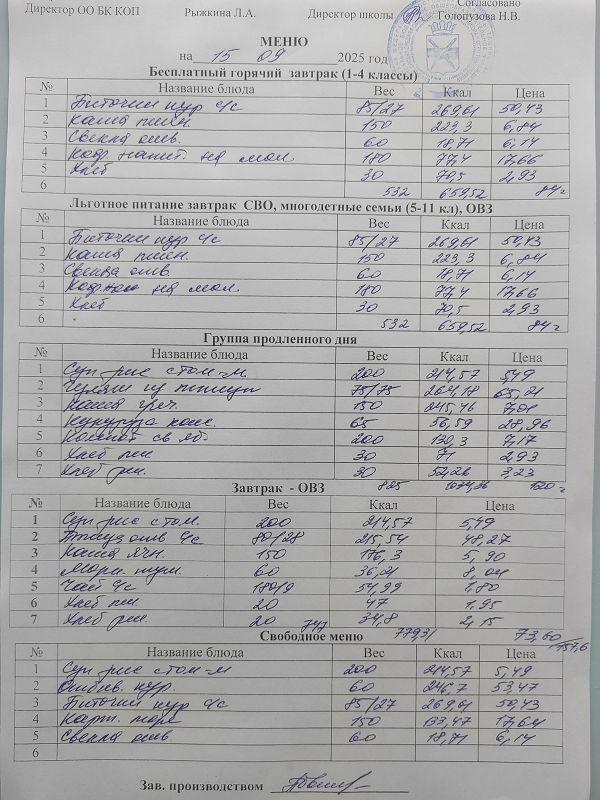 Согласовано
Директор ОО БК КОП Рыжкина Л.А. Директор школы Голопузова Н.В.
МЕНЮ
на 15 09 2025 год
Бесплатный горячий завтрак (1-4 классы)
№ Название блюда Вес Ккал Цена
1 Биточки кур с/с 85/27 269,61 50,43
2 Каша пшен. 150 223,3 6,84
3 Свекла отв. 60 18,71 6,14
4 Коф. напит. на мол. 180 77,4 17,66
5 Хлеб 30 70,5 2,93
6 532 659,52 84=
Льготное питание завтрак СВО, многодетные семьи (5-11 кл), ОВЗ
№ Название блюда Вес Ккал Цена
1 Биточки кур с/с 85/27 269,61 50,43
2 Каша пшен. 150 223,3 6,84
3 Свекла отв. 60 18,71 6,14
4 на мол. 180 77,4 17,66
5 Хлеб 30 70,5 2,93
6 532 659,52 84=
Группа продленного дня
№ Название блюда Вес Ккал Цена
1 Суп рис с том-м 200 214,57 5,49
2 из 75/75 65,21
3 Каша греч. 150 245,46 7,01
4 Кукуруза конс. 65 56,59 28,96
5 Компот св яб. 200 130,3 7,17
6 Хлеб пш. 30 71 2,93
7 Хлеб рж. 30 52,26 3,23
Завтрак - ОВЗ 825 1074,36 120=
№ Название блюда Вес Ккал Цена
1 Суп рис с том. 200 214,57 5,49
2 Птица отв с/с 80/28 215,54 48,27
3 Каша ячн. 150 176,3 5,90
4 Морк. туш. 60 36,21 8,04
5 Чай с/с 180/9 54,99 1,80
6 Хлеб пш. 20 47 1,95
7 Хлеб рж. 20 34,8 2,15
Свободное меню 747 779,31 73,60
№ Название блюда Вес Ккал Цена
1 Суп рис с том-м 200 214,57 5,49
2 Отбив. кур. 60 246,7 53,47
3 Биточки кур с/с 85/27 269,61 50,43
4 Карт. пюре 150 133,47 17,64
5 Свекла отв 60 18,71 6,14
6
Зав. производством